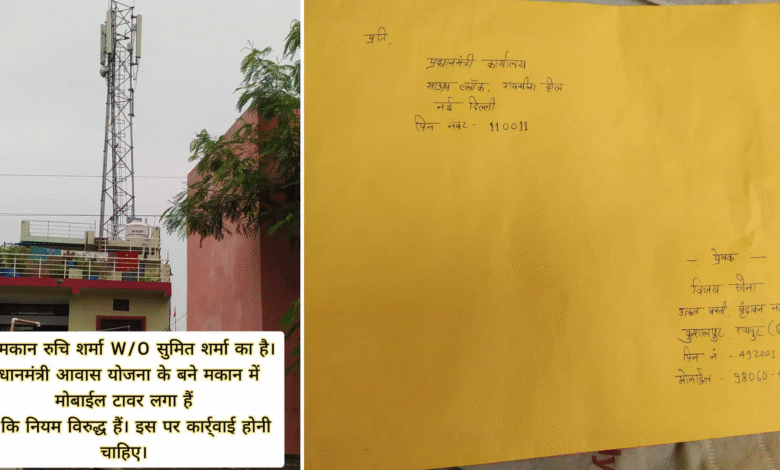 मकान रुचि शर्मा W/O सुमित शर्मा का है।
धानमंत्री आवास योजना के बने मकान में
मोबाईल टावर लगा हैं
कि नियम विरुद्ध हैं। इस पर कार्र्वाई होनी
चाहिए।
प्रति,
प्रधानमंत्री कार्यालय
साउथ ब्लॉक, रायसीना हील
नई दिल्ली
पिन नंबर - 110011
- प्रेषक -
विजय सोना
उत्कल बस्ती, वृंदावन
कुशालपुर, रायपुर
पिन नं. - 492001
मोबाईल - 98060-